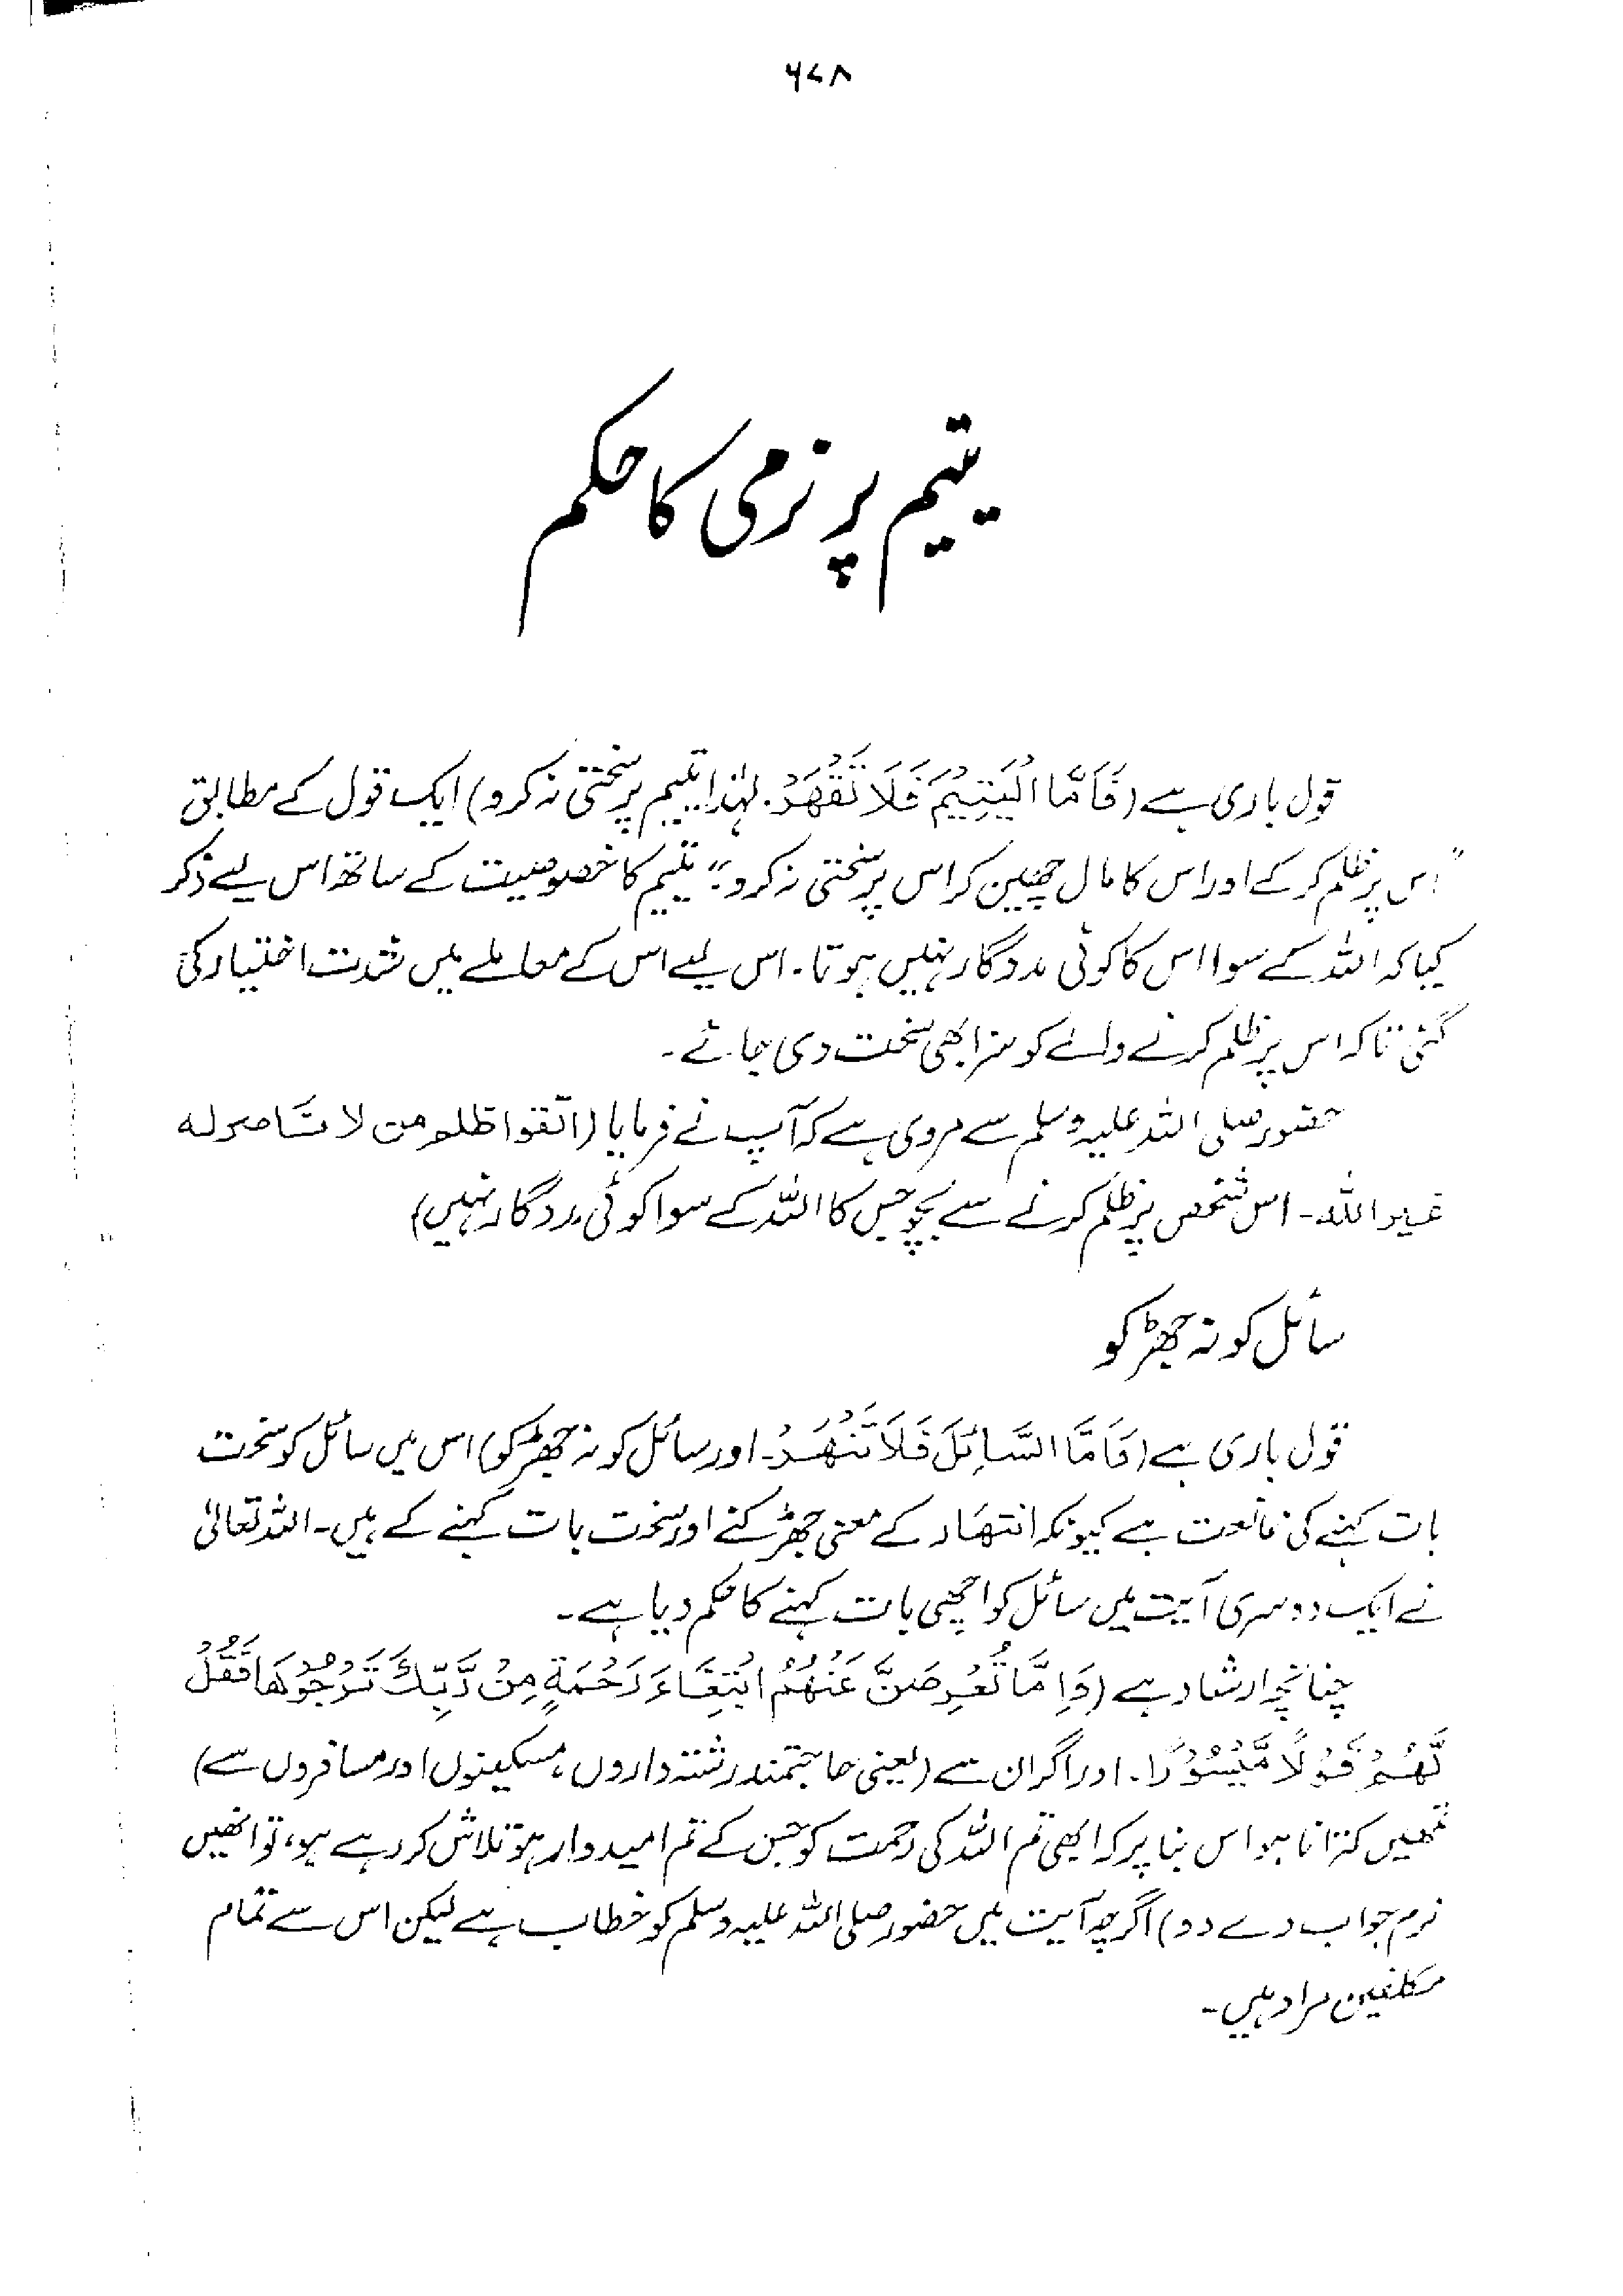 ۶۷۸
یتیم پر نرمی کا حکم
قول باری ہے (فَاَمَّا الْیَتِیْمَ فَلَا تَقْهَرْ۔ لہٰذا یتیم پر سختی نہ کرو) ایک قول کے مطابق
"اس پر ظلم کر کے اور اس کا مال چھین کر اس پر سختی نہ کرو" یتیم کا خصوصیت کے ساتھ اس لیے ذکر
کیا کہ اللہ کے سوا اس کا کوئی مددگار نہیں ہوتا۔ اس لیے اس کے معاملے میں شدت اختیار کی
گئی تاکہ اس پر ظلم کرنے والے کو سزا بھی سخت دی جائے۔
حضور صلی اللہ علیہ وسلم سے مروی ہے کہ آپ نے فرمایا (اتقوا ظلم من لا ناصر له
غیر اللہ۔ اس شخص پر ظلم کرنے سے بچو جس کا اللہ کے سوا کوئی مددگار نہیں)
سائل کو نہ جھڑکو
قول باری ہے (وَاَمَّا السَّائِلَ فَلَا تَنْهَرْ۔ اور سائل کو نہ جھڑکو) اس میں سائل کو سخت
بات کہنے کی ممانعت ہے کیونکہ انتہار کے معنی جھڑکنے اور سخت بات کہنے کے ہیں۔ اللہ تعالیٰ
نے ایک دوسری آیت میں سائل کو اچھی بات کہنے کا حکم دیا ہے۔
چنانچہ ارشاد ہے (وَاِمَّا تُعْرِضَنَّ عَنْهُمُ ابْتِغَاءَ رَحْمَةٍ مِنْ رَّبِّكَ تَرْجُوْهَا فَقُلْ
لَّهُمْ قَوْلًا مَّيْسُوْرًا۔ اور اگر ان سے (یعنی حاجتمند رشتہ داروں، مسکینوں اور مسافروں سے)
تمھیں کترانا ہو اس بنا پر کہ ابھی تم اللہ کی رحمت کو جس کے تم امیدوار ہو تلاش کر رہے ہو، تو انھیں
نرم جواب دے دو) اگرچہ آیت میں حضور صلی اللہ علیہ وسلم کو خطاب ہے لیکن اس سے تمام
مکلفین مراد ہیں۔